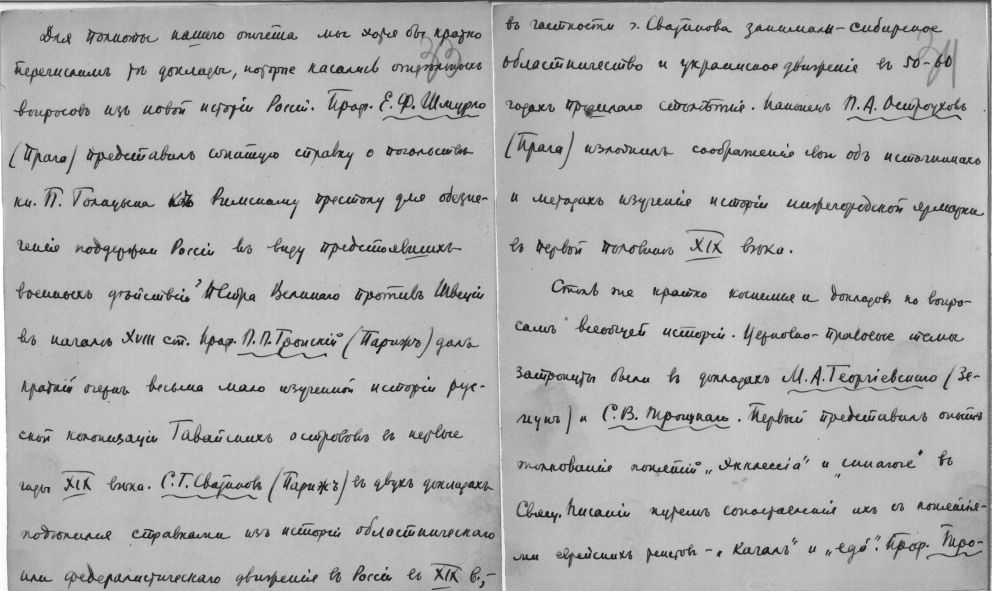 Для полноты нашего отчета мы хотя бы кратко
перечислимъ тѣ доклады, которые касались отдѣльныхъ
вопросовъ изъ новой исторіи Россіи. Проф. Е. Ф. Шмурло
(Прага) представилъ сжатую справку о посольствѣ
кн. П. Голицына къ Римскому престолу для обезпе-
ченія поддержки Россіи въ виду предстоявшихъ
военныхъ дѣйствій Петра Великаго противъ Швеціи
въ началѣ XVIII ст. Проф. П. П. Гронскій (Парижъ) далъ
краткій очеркъ весьма мало изученной исторіи рус-
ской колонизаціи Гавайскихъ острововъ въ первые
годы XIX вѣка. С. Г. Сватиковъ (Парижъ) въ двухъ докладахъ
подѣлился справками изъ исторіи областническаго
или федералистическаго движенія въ Россіи въ XIX в.,-
33
въ частности г. Сватикова занимали-сибирское
областничество и украинское движеніе въ 50-60
годахъ прошлаго столѣтія. Наконецъ П. А. Остроуховъ
(Прага) изложилъ соображенія свои объ источникахъ
и методахъ изученія исторіи нижегородской ярмарки
въ первой половинѣ XIX вѣка.
Столь же кратко коснемся и докладовъ по вопро-
самъ всеобщей исторіи. Церковно-правовые темы
затронуты были въ докладахъ М. А. Георгіевскаго (Зе-
мунъ) и С. В. Троицкаго. Первый представилъ опытъ
толкованія понятій „Экклессіа" и „синагоге" въ
Свящ. Писаніи путемъ сопоставленія ихъ съ понятія-
ми еврейскихъ текстовъ - „Кагалъ" и „едá". Проф. Тро-
34